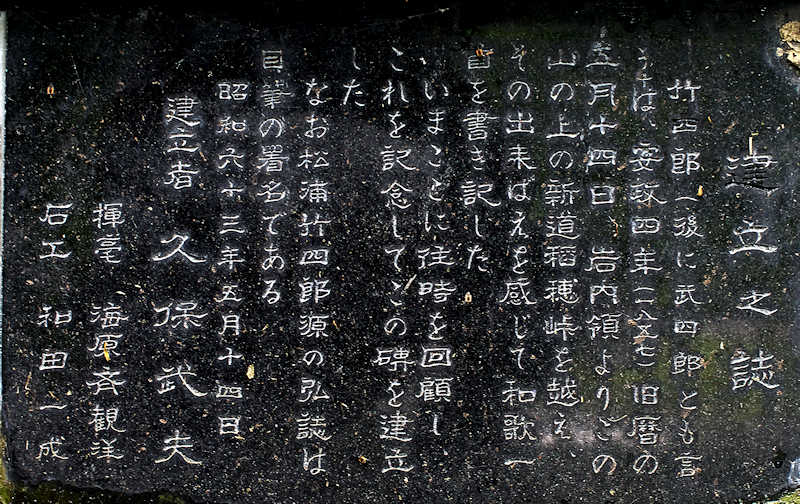 建立之誌
竹四郎(後に武四郎とも言
うは、安政四年(一八五七)旧暦の
五月十四日、岩内領よりこの
山の上の新道稲穂峠を越え、
その出来ばえを感じて和歌一
首を書き記した
いまここに往時を回顧し、
これを記念してこの碑を建立
した
なお松浦竹四郎源の弘誌は
自筆の署名である
昭和六十三年五月十四日
建立者 久保武夫
揮毫 海原斉観洋
石工 和田一成